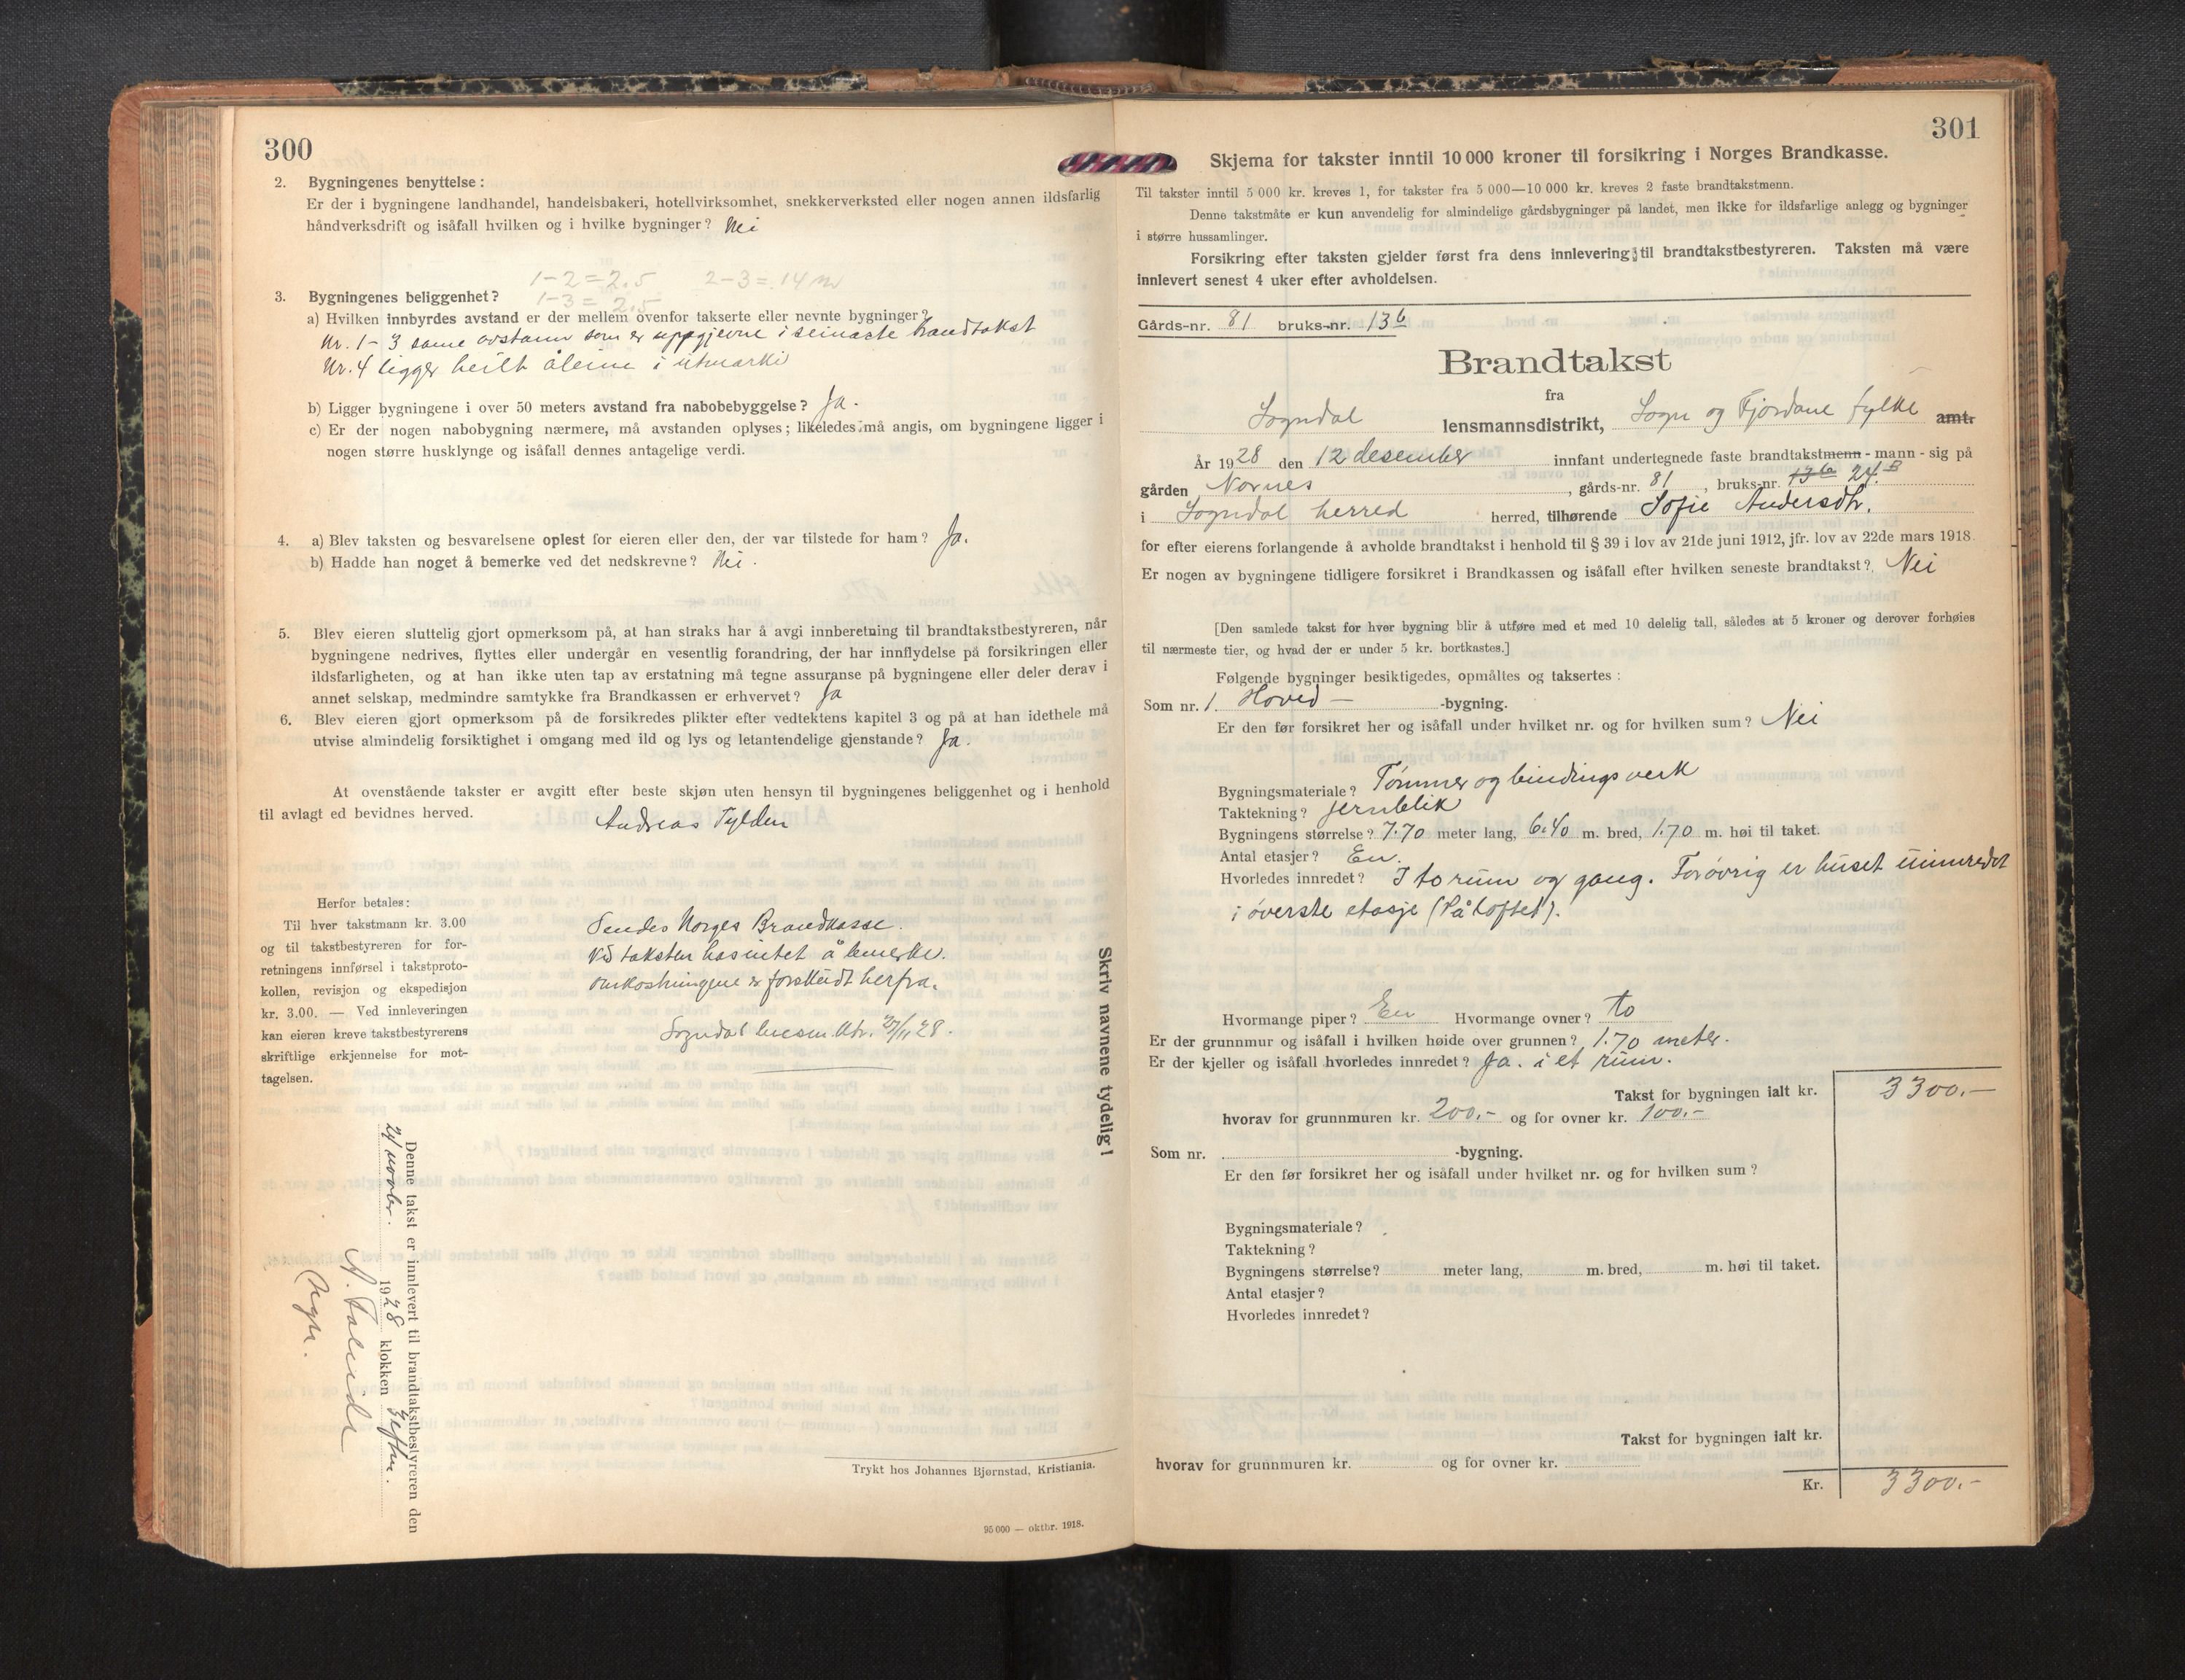 300
2. Bygningenes benyttelse:
Er der i bygningene landhandel, handelsbakeri, hotellvirksomhet, snekkerverksted eller nogen annen ildsfarlig
håndverksdrift og isåfall hvilken og i hvilke bygninger? Nei
1-2=2.5 2-3=14 m
3. Bygningenes beliggenhet? 1-3=2.5
a) Hvilken innbyrdes avstand er der mellem ovenfor takserte eller nevnte bygninger?
Nr. 1-3 same avstann som er uppgjevne i seinaste brandtakst
Nr. 4 ligger heilt åleine i utmarki
b) Ligger bygningene i over 50 meters avstand fra nabobebyggelse? Ja.
c) Er der nogen nabobygning nærmere, må avstanden oplyses; likeledes må angis, om bygningene ligger i
nogen større husklynge og isåfall dennes antagelige verdi.
4. a) Blev taksten og besvarelsene oplest for eieren eller den, der var tilstede for ham? Ja.
b) Hadde han noget å bemerke ved det nedskrevne? Nei.
5. Blev eieren sluttelig gjort opmerksom på, at han straks har å avgi innberetning til brandtakstbestyreren, når
bygningene nedrives, flyttes eller undergår en vesentlig forandring, der har innflydelse på forsikringen eller
ildsfarligheten, og at han ikke uten tap av erstatning må tegne assuranse på bygningene eller deler derav i
annet selskap, medmindre samtykke fra Brandkassen er erhvervet? Ja
6. Blev eieren gjort opmerksom på de forsikredes plikter efter vedtektens kapitel 3 og på at han idethele må
utvise almindelig forsiktighet i omgang med ild og lys og letantendelige gjenstande? Ja.
At ovenstående takster er avgitt efter beste skjøn uten hensyn til bygningenes beliggenhet og i henhold
til avlagt ed bevidnes herved.
Andreas Tylden
Herfor betales:
Til hver takstmann kr. 3.00
og til takstbestyreren for for-
retningens innførsel i takstproto-
kollen, revisjon og ekspedisjon
kr. 3.00. — Ved innleveringen
kan eieren kreve takstbestyrerens
skriftlige erkjennelse for mot-
tagelsen.
Sendes Norges Brandkasse.
Ved taksten has intet å bemerke.
Omkostningene er forskudt herfra.
Sogndal 27/11 28.
Skriv navnene tydelig!
Denne takst er innlevert til brandtakstbestyreren den
24/novbr. 1928 klokken 3 eftm.
Trykt hos Johannes Bjørnstad, Kristiania.
95 000 — oktbr. 1918.
301
Skjema for takster inntil 10 000 kroner til forsikring i Norges Brandkasse.
Til takster inntil 5 000 kr. kreves 1, for takster fra 5 000—10 000 kr. kreves 2 faste brandtakstmenn.
Denne takstmåte er kun anvendelig for almindelige gårdsbygninger på landet, men ikke for ildsfarlige anlegg og bygninger
i større hussamlinger.
Forsikring efter taksten gjelder først fra dens innlevering til brandtakstbestyreren. Taksten må være
innlevert senest 4 uker efter avholdelsen.
Gårds-nr. 81 bruks-nr. 136
Brandtakst
fra
Sogndal lensmannsdistrikt, Sogn og Fjordane fylke amt.
År 1928 den 12 desember innfant undertegnede faste brandtakstmenn - mann - sig på
gården Nornes, gårds-nr. 81, bruks-nr. 136 24.B
i Sogndal herred herred, tilhørende Sofie Andersdtr.
for efter eierens forlangende å avholde brandtakst i henhold til § 39 i lov av 21de juni 1912, jfr. lov av 22de mars 1918.
Er nogen av bygningene tidligere forsikret i Brandkassen og isåfall efter hvilken seneste brandtakst? Nei
[Den samlede takst for hver bygning blir å utføre med et med 10 delelig tall, således at 5 kroner og derover forhøies
til nærmeste tier, og hvad der er under 5 kr. bortkastes.]
Følgende bygninger besiktigedes, opmåltes og taksertes:
Som nr. 1. Hoved— -bygning.
Er den før forsikret her og isåfall under hvilket nr. og for hvilken sum? Nei
Bygningsmateriale? Tømmer og bindingsverk
Taktekning? Jernblik
Bygningens størrelse? 7.70 meter lang, 6.40 m. bred, 1.70 m. høi til taket.
Antal etasjer? En.
Hvorledes innredet? I to rum og gang. Forøvrig er huset uinnredet
i øverste etasje (På loftet).
Hvormange piper? En Hvormange ovner? to
Er der grunnmur og isåfall i hvilken høide over grunnen? 1.70 meter.
Er der kjeller og isåfall hvorledes innredet? Ja. i et rum.
Takst for bygningen ialt kr. 3300.-
hvorav for grunnmuren kr. 200.- og for ovner kr. 100.-
Som nr. -bygning.
Er den før forsikret her og isåfall under hvilket nr. og for hvilken sum?
Bygningsmateriale?
Taktekning?
Bygningens størrelse? meter lang, m. bred, m. høi til taket.
Antal etasjer?
Hvorledes innredet?
Takst for bygningen ialt kr.
hvorav for grunnmuren kr. og for ovner kr.
Kr. 3300.-